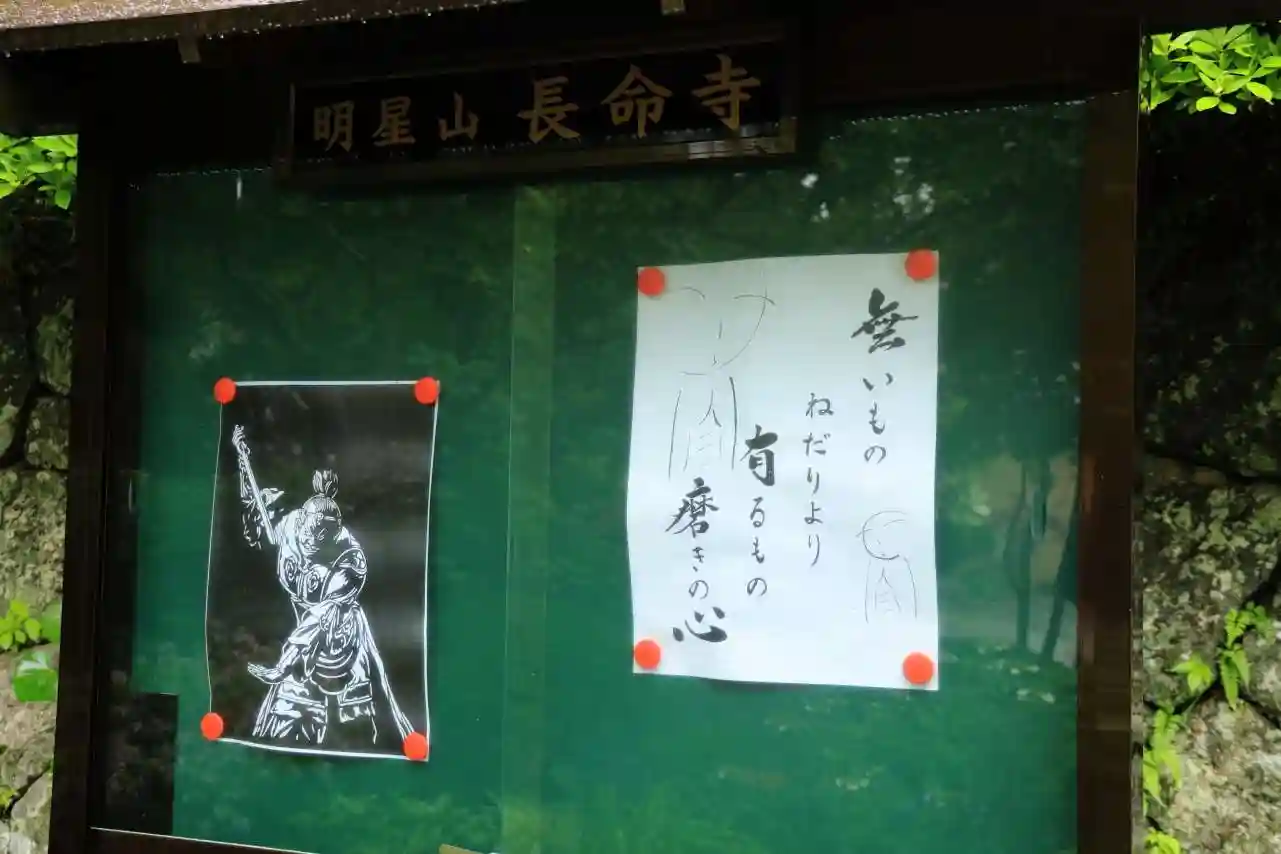 明星山 長命寺
無いもの
ねだりより
有るもの
磨きの心